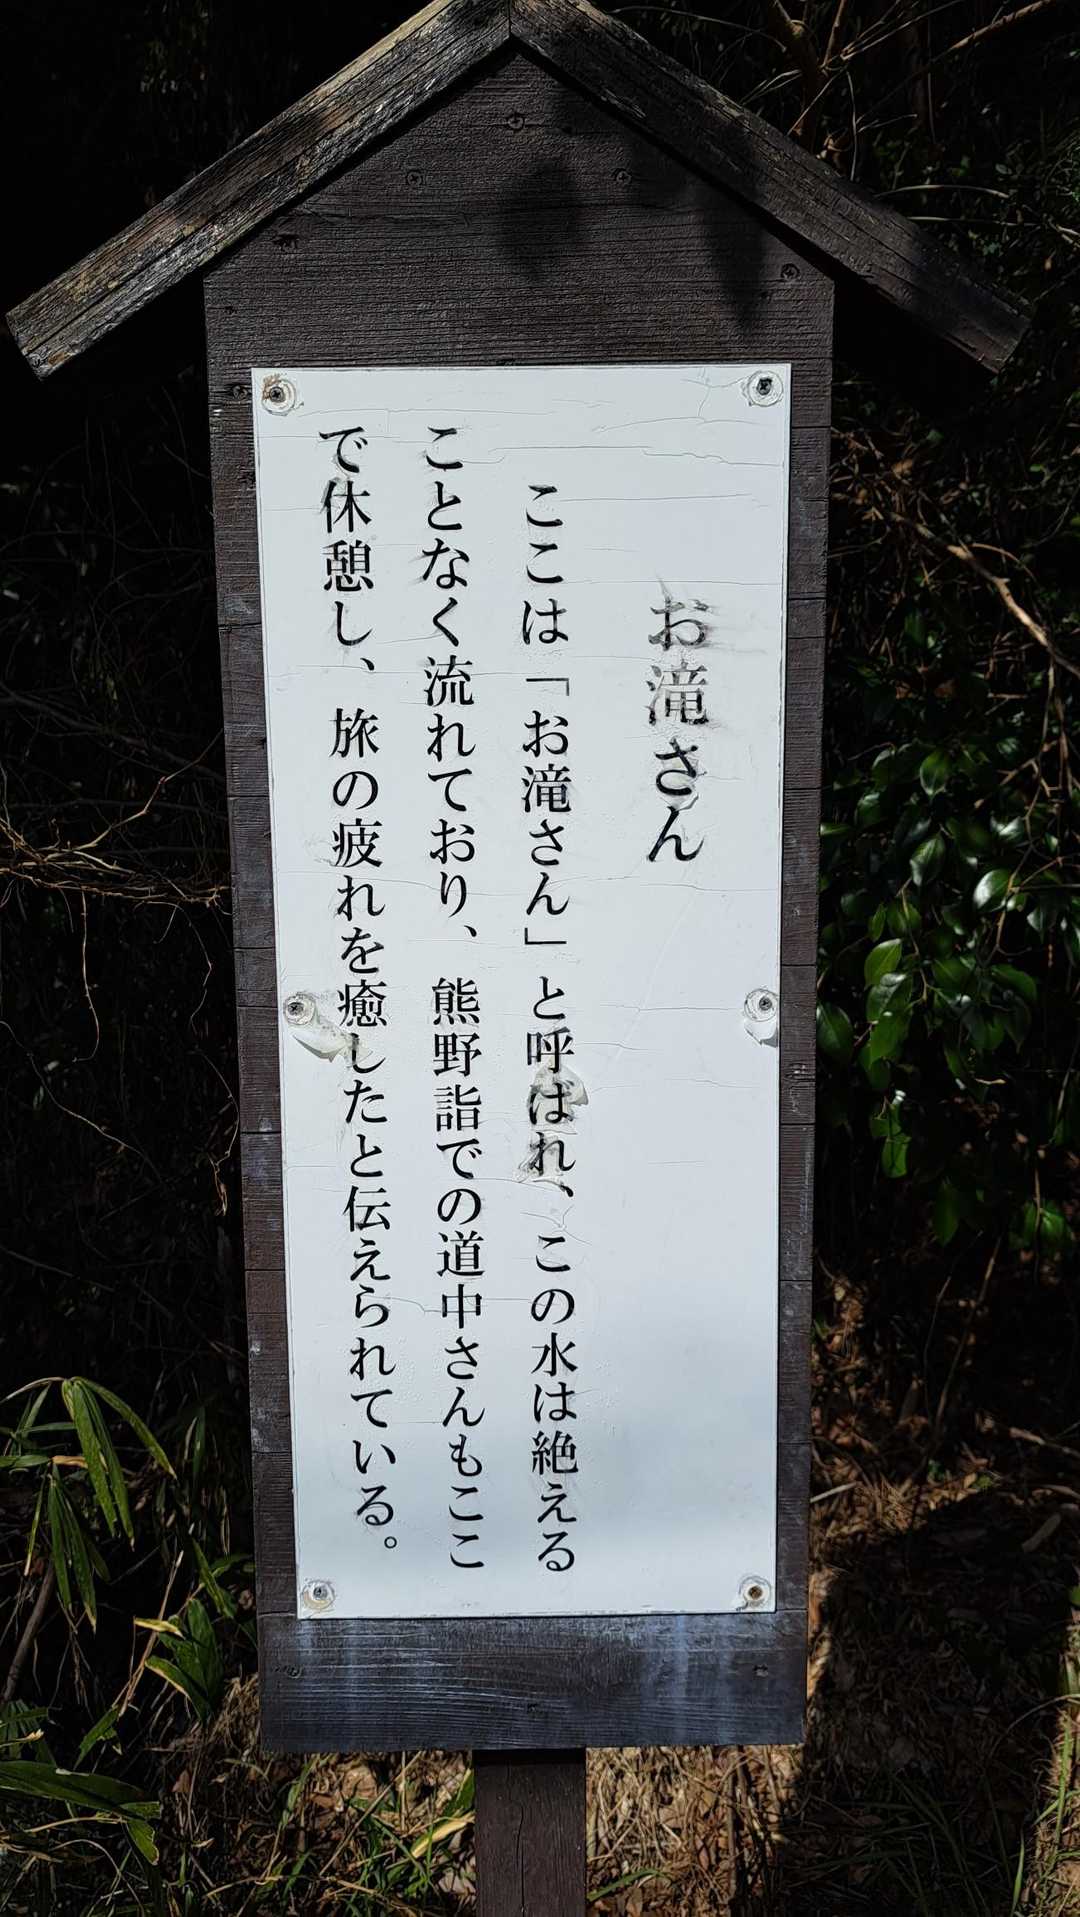 お滝さん
ここは「お滝さん」と呼ばれ、この水は絶える
ことなく流れており、熊野詣での道中さんもここ
で休憩し、旅の疲れを癒したと伝えられている。